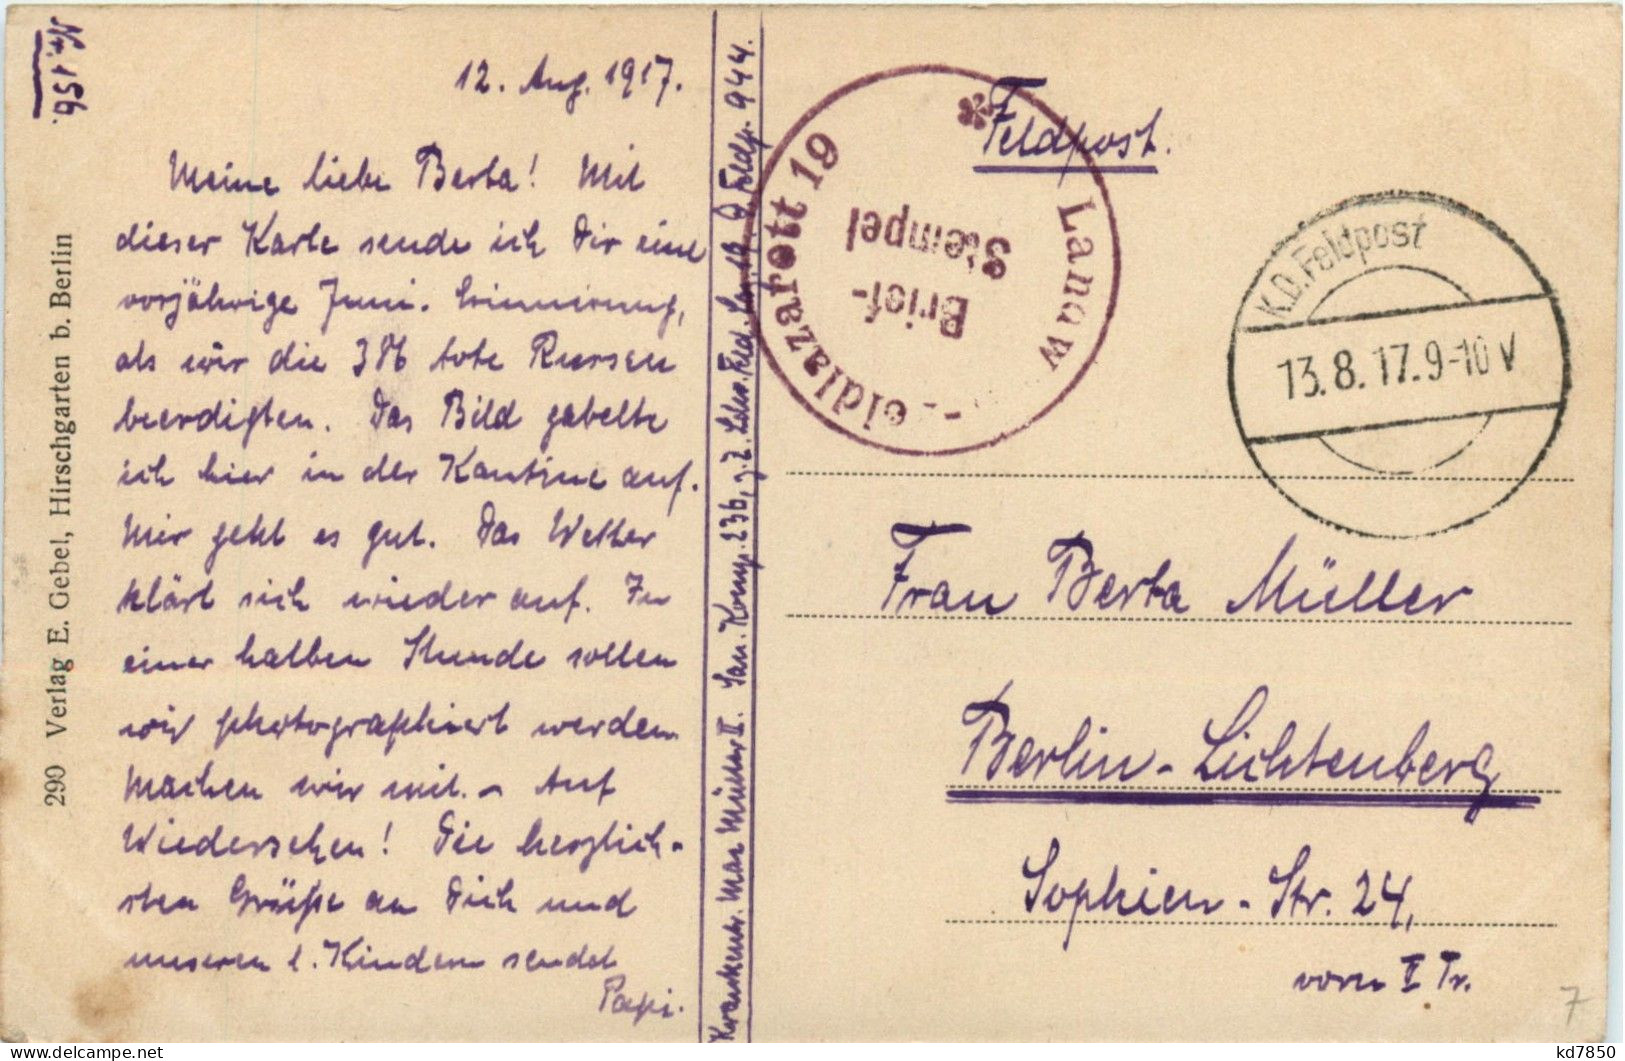 Nr. 156.
12. Aug. 1917.
Meine liebe Berta! Mit
dieser Karte sende ich Dir eine
vorjährige Juni-Erinnerung,
als wir die tote Russen
beerdigten. Das Bild gabelte
ich hier in der Kantine auf.
Mir geht es gut. Das Wetter
klärt sich wieder auf. In
einer halben Stunde sollen
wir photographiert werden
machen wir mit. – Auf
Wiedersehen! Die herzlich-
sten Grüße an Dich und
unseren l. Kindern sendet
Papi.
290 Verlag E. Gebel, Hirschgarten b. Berlin
Krankentr. Max Müller II. San. Komp. 236, z. Z. Ldw. Feld. Laz. 19 D. Feldp. 944.
Feldlazarett 19 * Landw
Brief-
Stempel
Feldpost.
K.D. Feldpost
13.8.17.9-10 V
Frau Berta Müller
Berlin-Lichtenberg
Sophien-Str. 24,
vorn I Tr.
7
kd7850